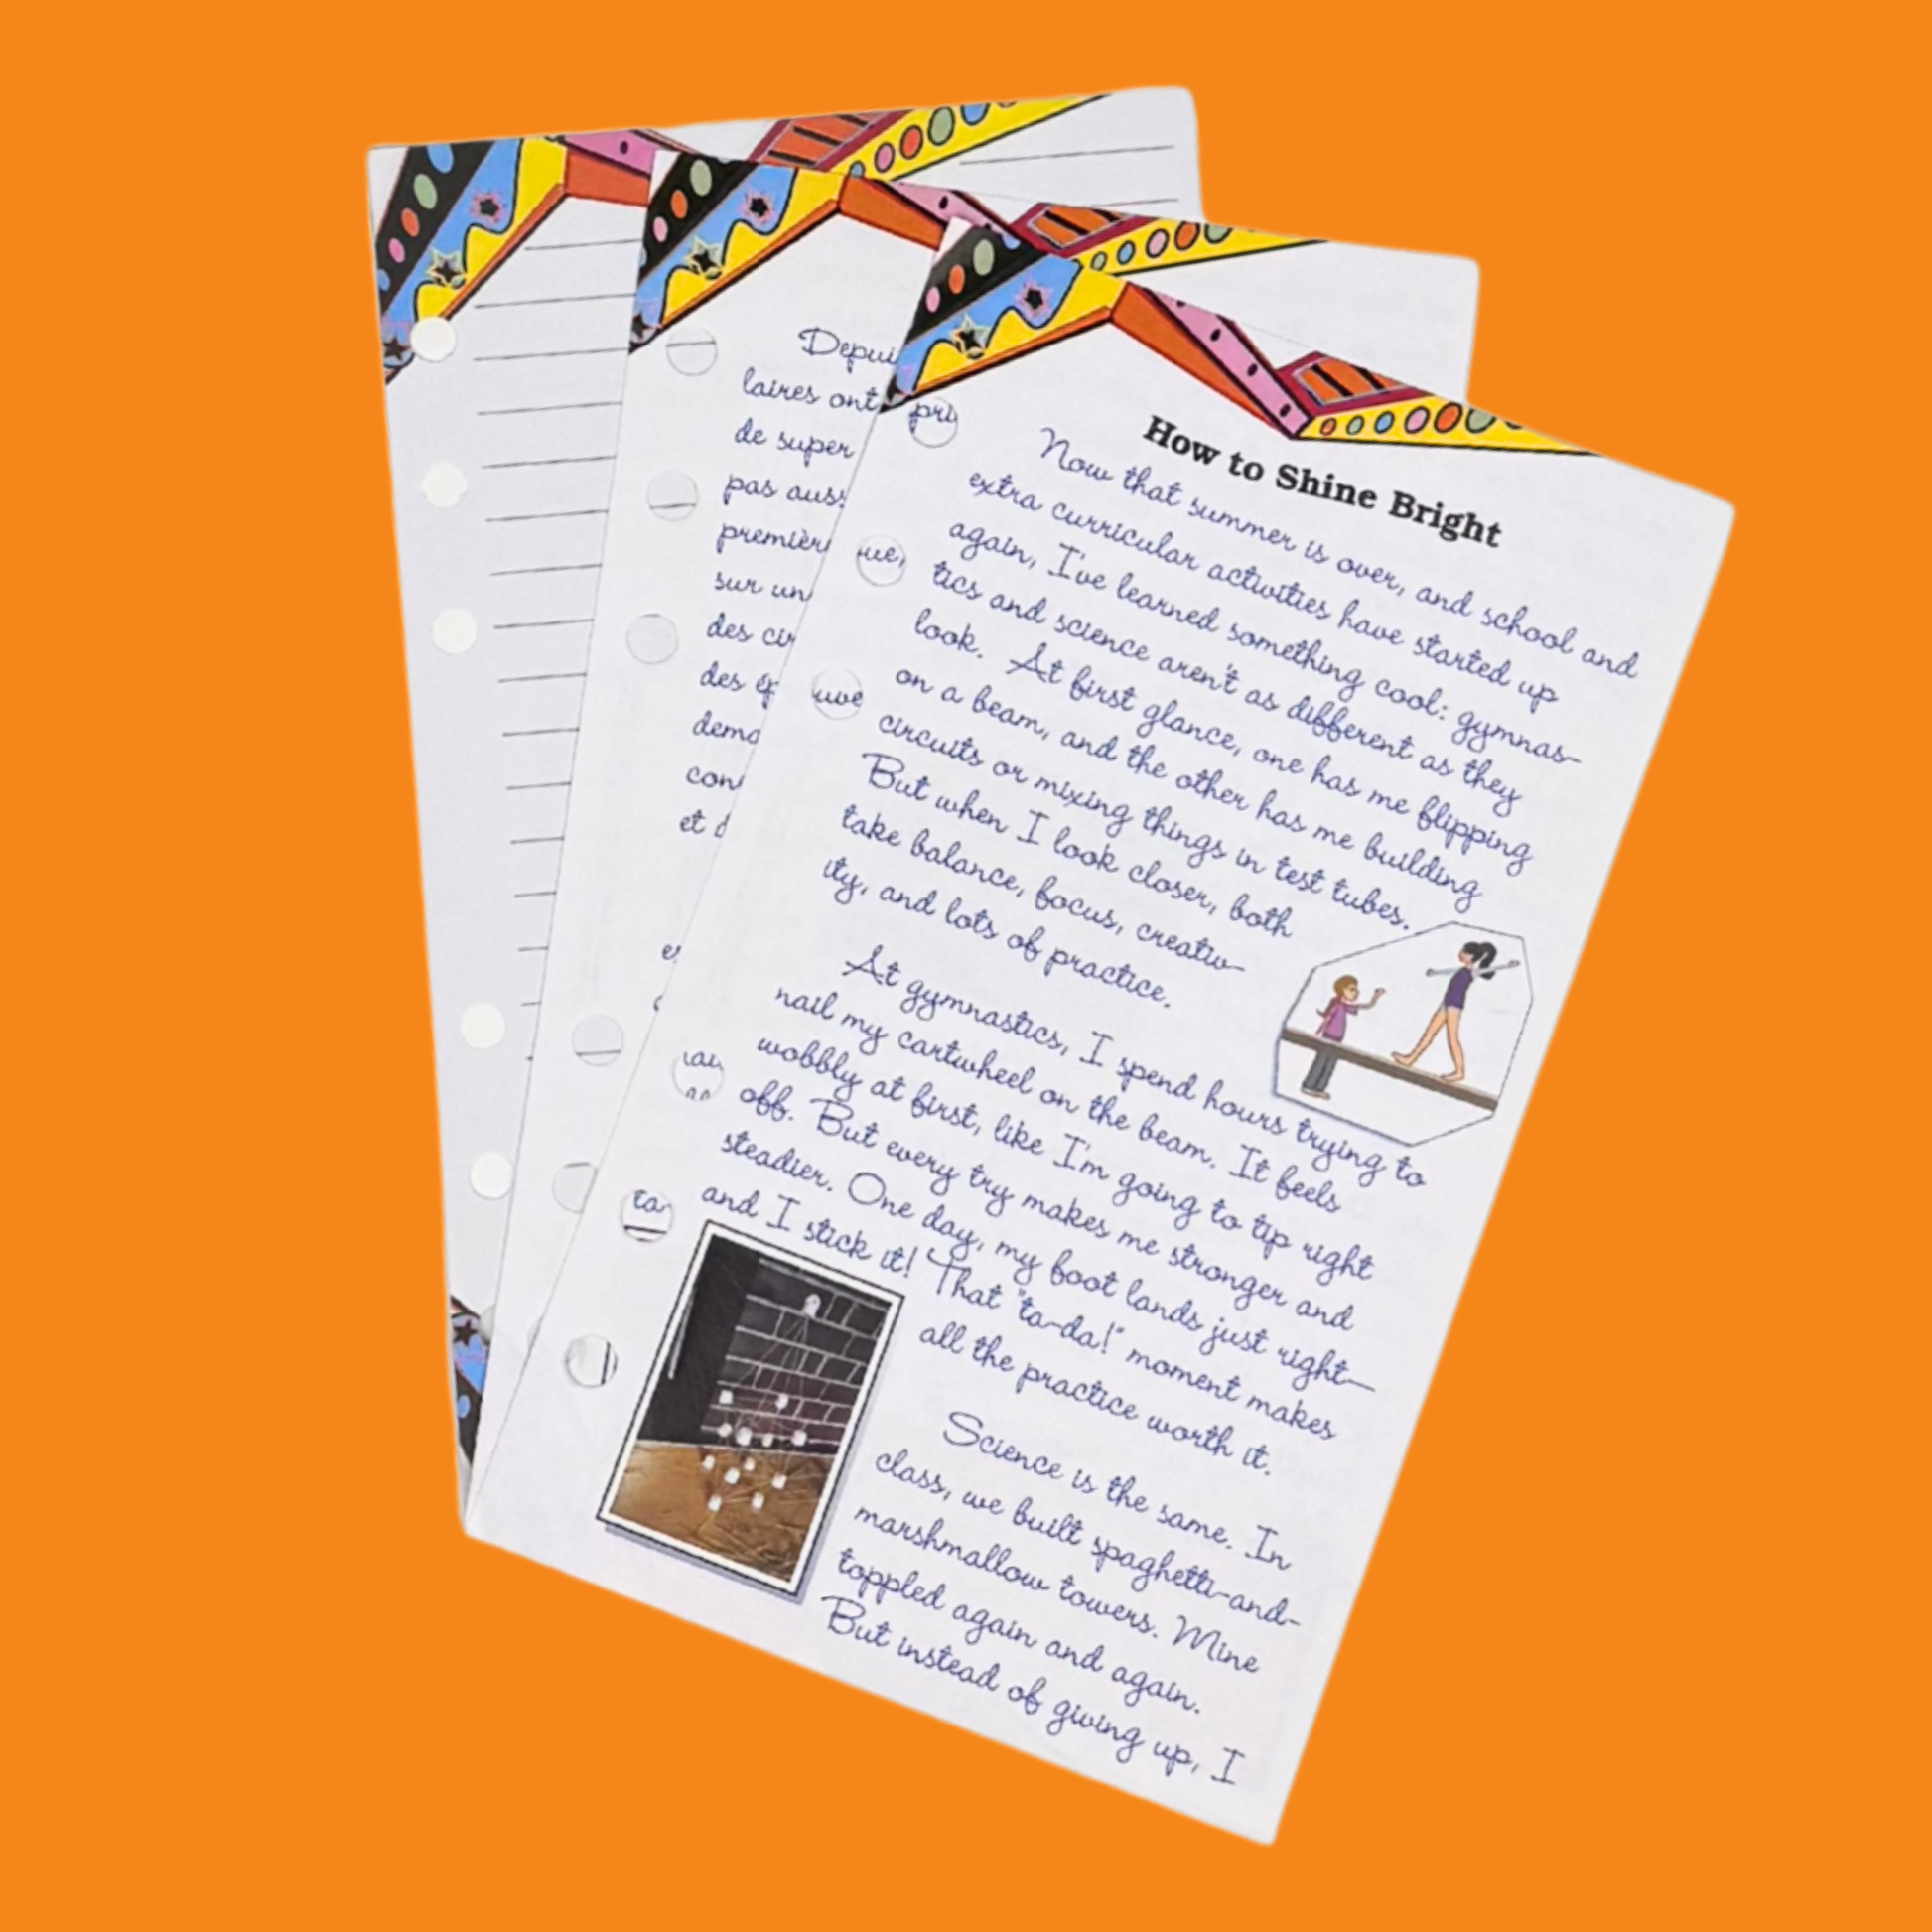 How to Shine Bright
Now that summer is over, and school and
extra curricular activities have started up
again, I've learned something cool: gymnas-
tics and science aren't as different as they
look. At first glance, one has me flipping
on a beam, and the other has me building
circuits or mixing things in test tubes.
But when I look closer, both
take balance, focus, creativ-
ity, and lots of practice.
At gymnastics, I spend hours trying to
nail my cartwheel on the beam. It feels
wobbly at first, like I'm going to tip right
off. But every try makes me stronger and
steadier. One day, my foot lands just right—
and I stick it! That "ta-da!" moment makes
all the practice worth it.
Science is the same. In
class, we built spaghetti-and-
marshmallow towers. Mine
toppled again and again.
But instead of giving up, I
Depui
laires ont
de super
pas auss
premièr
sur un
des cir
des
demo
con
et